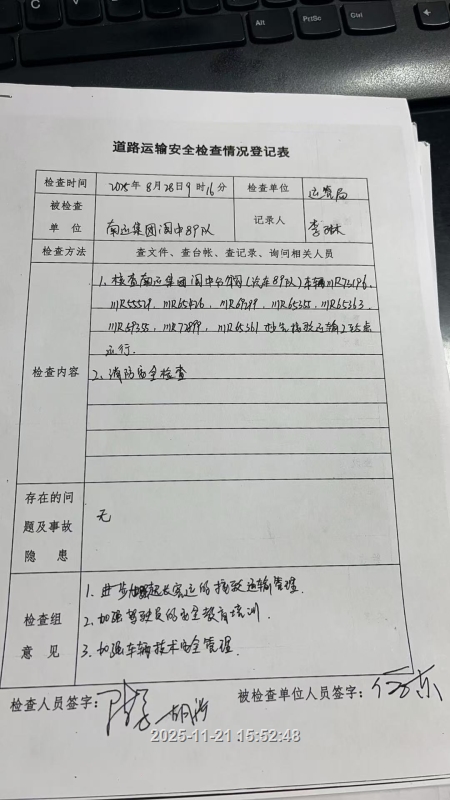 C V B N M Alt PrtSc Ctrl
道路运输安全检查情况登记表
检查时间 2025年8月28日9时16分 检查单位 运管局
被检查单位 南运集团阆中89队 记录人 李
检查方法 查文件、查台帐、查记录、询问相关人员
检查内容
1、核查南运集团阆中分公司(汽车89队)车辆川R72196、
川R55529、川R65426、川R69399、川R65355、川R65363、
川R59355、川R72899、川R65361 接驳运输
运行.
2、消防安全检查
存在的问题及事故隐患 无
检查组意见
1. 进步加强超长客运的接驳运输管理.
2. 加强驾驶员的安全教育培训.
3. 加强车辆技术安全管理.
检查人员签字: 被检查单位人员签字:
2025-11-21 15:52:48